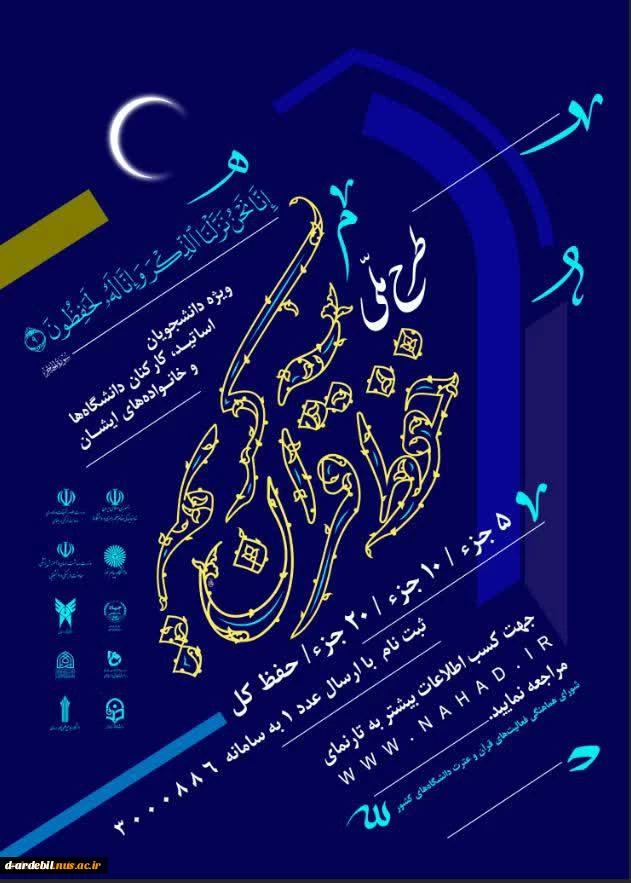 إِنَّا نَحْنُ نَزَّلْنَا الذِّكْرَ وَإِنَّا لَهُ لَحَافِظُونَ
طرح ملّی
حفظ قرآن کریم
ویژه دانشجویان
اساتید، کارکنان دانشگاه‌ها
و خانواده‌های ایشان
۵ جزء / ۱۰ جزء / ۲۰ جزء / حفظ کل
ثبت نام با ارسال عدد ۱ به سامانه ۳۰۰۰۰۸۸۶
جهت کسب اطلاعات بیشتر به تارنمای
WWW.NAHAD.IR
مراجعه نمایید.
شورای هماهنگی فعالیت‌های قرآن و عترت دانشگاه‌های کشور
d-ardebil.nus.ac.ir